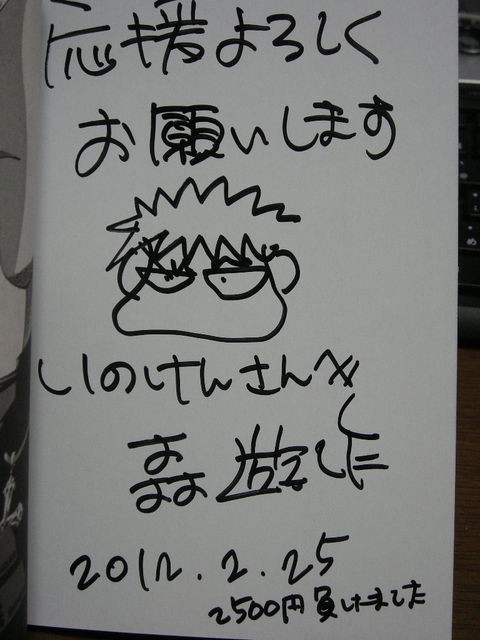 応援よろしく
お願いします
いのけんさんへ
森 遊作
2012.2.25
2500円負けました